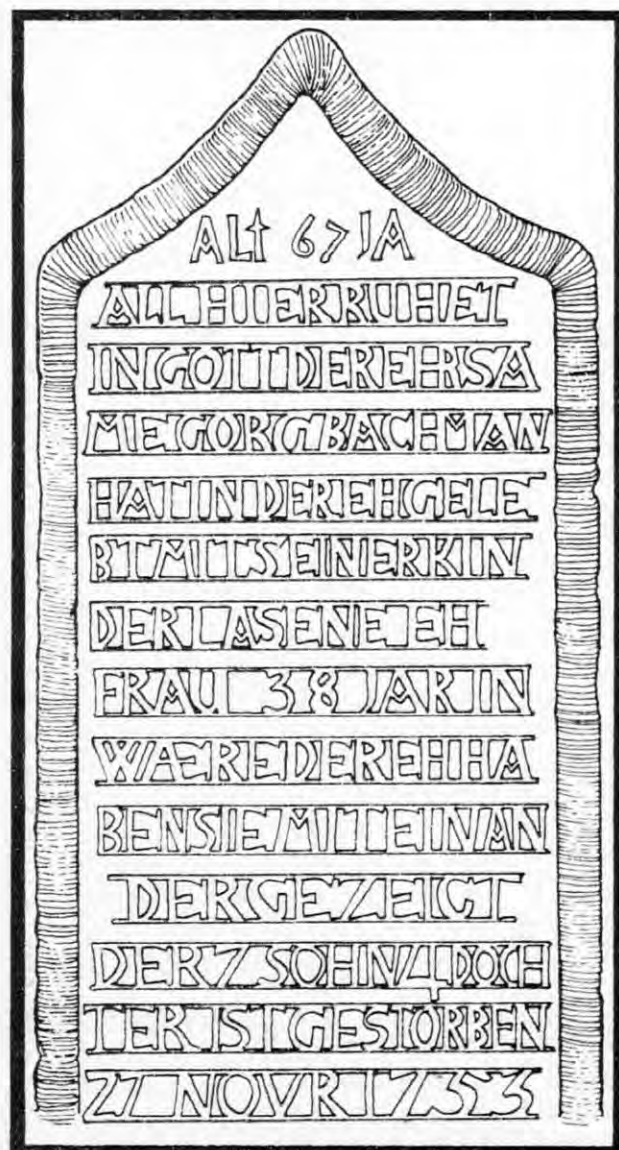 ALt 67 JA
ALL HIER RUHET
IN GOTT DER EHRSA
ME GORG BACHMAN
HAT IN DER EH GELE
BT MIT SEINER KIN
DER LASENE EH
FRAU 38 JAR IN
WÆRE DER EH HA
BEN SIE MIT EINAN
DER GEZEIGT
DER 7 SOHN 4 DOCH
TER IST GESTORBEN
27 NOVR 1753